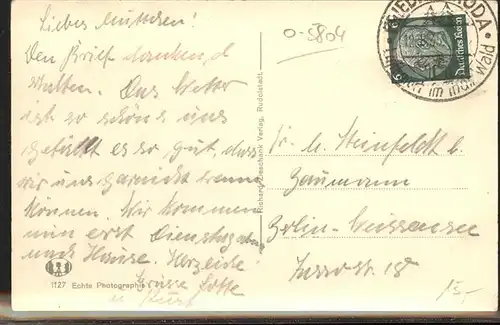 Liebes Muttchen!
Den Brief dankend
erhalten. Das Wetter
ist so schön u. uns
gefällt es so gut, dass
wir uns garnicht trennen
können. Wir kommen
nun erst Dienstag
nach Hause. Herzliche
Grüsse Lotte
u. Kurt
0-5804
Deutsches Reich
im
Wald
Fr. M. Steinfeldt b.
Baumann
Berlin-Weissensee
18
15,-
Richard Zieschank Verlag, Rudolstadt
1127 Echte Photographie